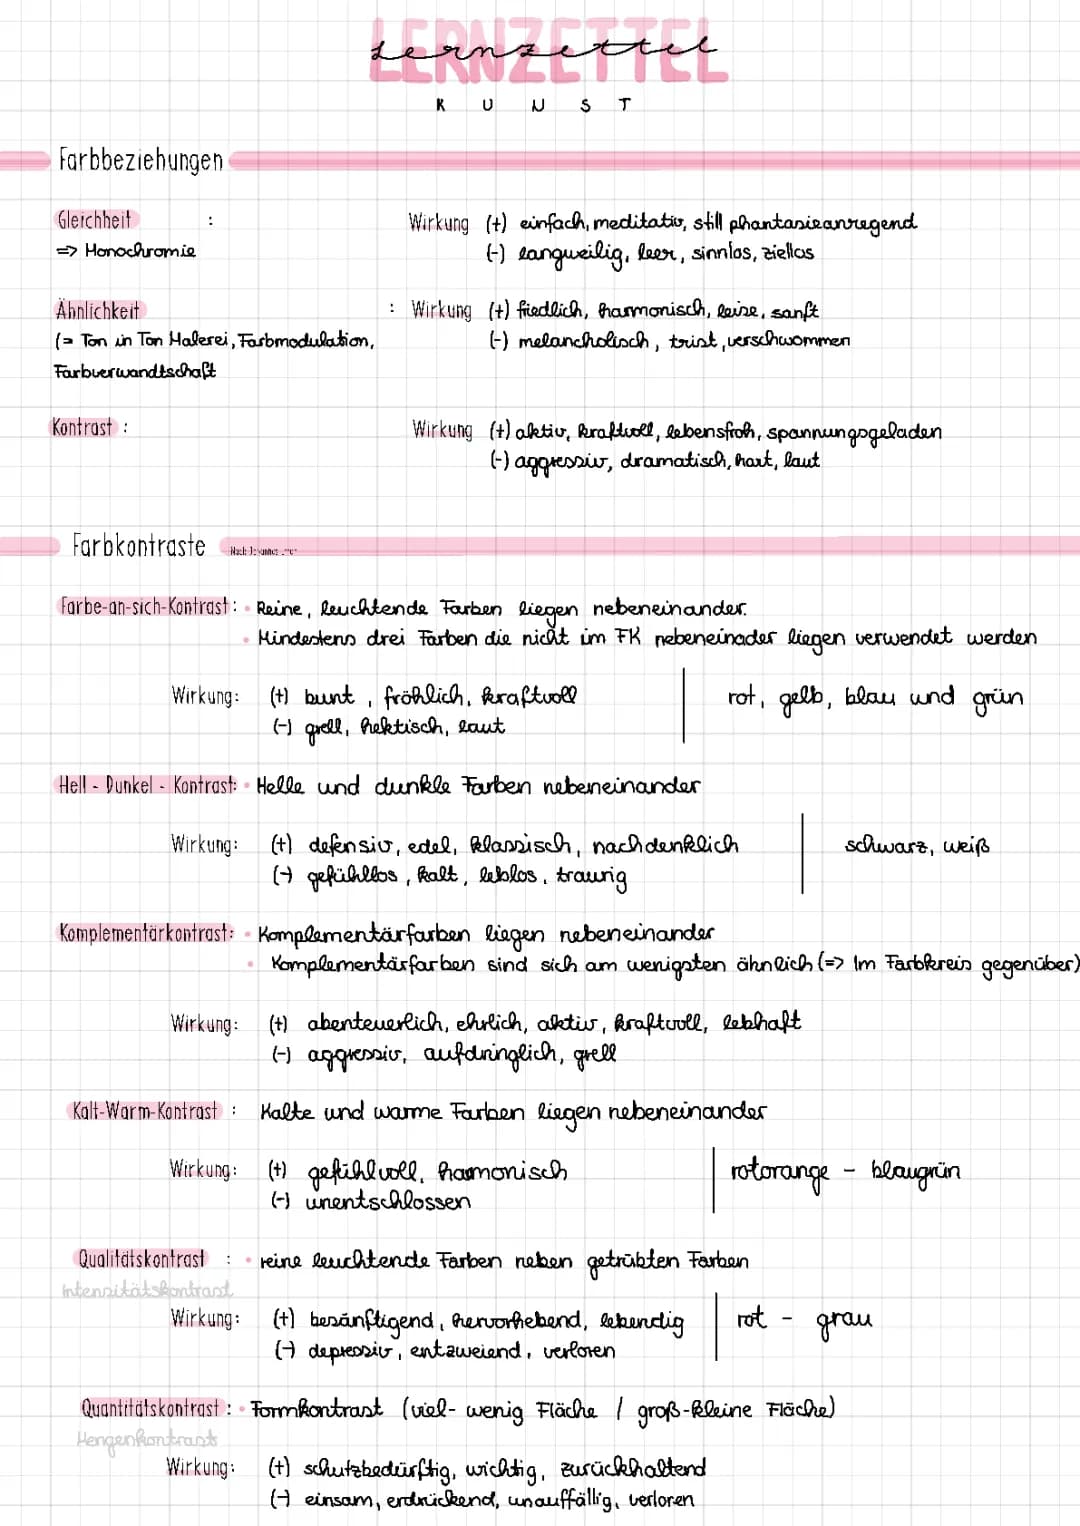 LERNZETTEL
Lernzettel
KUNST
Farbbeziehungen
Gleichheit : Wirkung (+) einfach, meditativ, still phantasieanregend
=> Monochromie (-) langweilig, leer, sinnlos, ziellos
Ähnlichkeit : Wirkung (+) fiedlich, harmonisch, leise, sanft
(= Ton in Ton Malerei, Farbmodulation, (-) melancholisch, trist, verschwommen
Farbverwandtschaft
Kontrast : Wirkung (+) aktiv, kraftvoll, lebensfroh, spannungsgeladen
(-) aggressiv, dramatisch, hart, laut
Farbkontraste Nach Johannes
Farbe-an-sich-Kontrast: • Reine, leuchtende Farben liegen nebeneinander.
• Mindestens drei Farben die nicht im FK nebeneinader liegen verwendet werden
Wirkung: (+) bunt, fröhlich, kraftvoll | rot, gelb, blau und grün
(-) grell, hektisch, laut
Hell - Dunkel - Kontrast: • Helle und dunkle Farben nebeneinander
Wirkung: (+) defensiv, edel, klassisch, nachdenklich | schwarz, weiß
(-) gefühllos, kalt, leblos, traurig
Komplementärkontrast: • Komplementärfarben liegen nebeneinander
• Komplementärfarben sind sich am wenigsten ähnlich (=> Im Farbkreis gegenüber)
Wirkung: (+) abenteuerlich, ehrlich, aktiv, kraftvoll, lebhaft
(-) aggressiv, aufdringlich, grell
Kalt-Warm-Kontrast : Kalte und warme Farben liegen nebeneinander
Wirkung: (+) gefühlvoll, hamonisch | rotorange - blaugrün
(-) unentschlossen
Qualitätskontrast : • reine leuchtende Farben neben getrübten Farben
Intensitätskontrast
Wirkung: (+) besänftigend, hervorhebend, lebendig | rot - grau
(-) depressiv, entzweiend, verloren
Quantitätskontrast : • Formkontrast (viel- wenig Fläche / groß-kleine Fläche)
Mengenkontrast
Wirkung: (+) schutzbedürftig, wichtig, zurückhaltend
(-) einsam, erdrückend, unauffällig, verloren